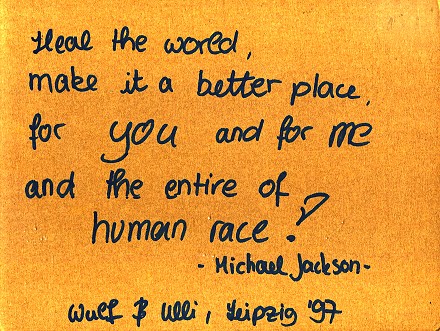 Heal the world,
make it a better place,
for you and for me
and the entire of
human race!
- Michael Jackson -
Wulf & Ulli, Leipzig '97